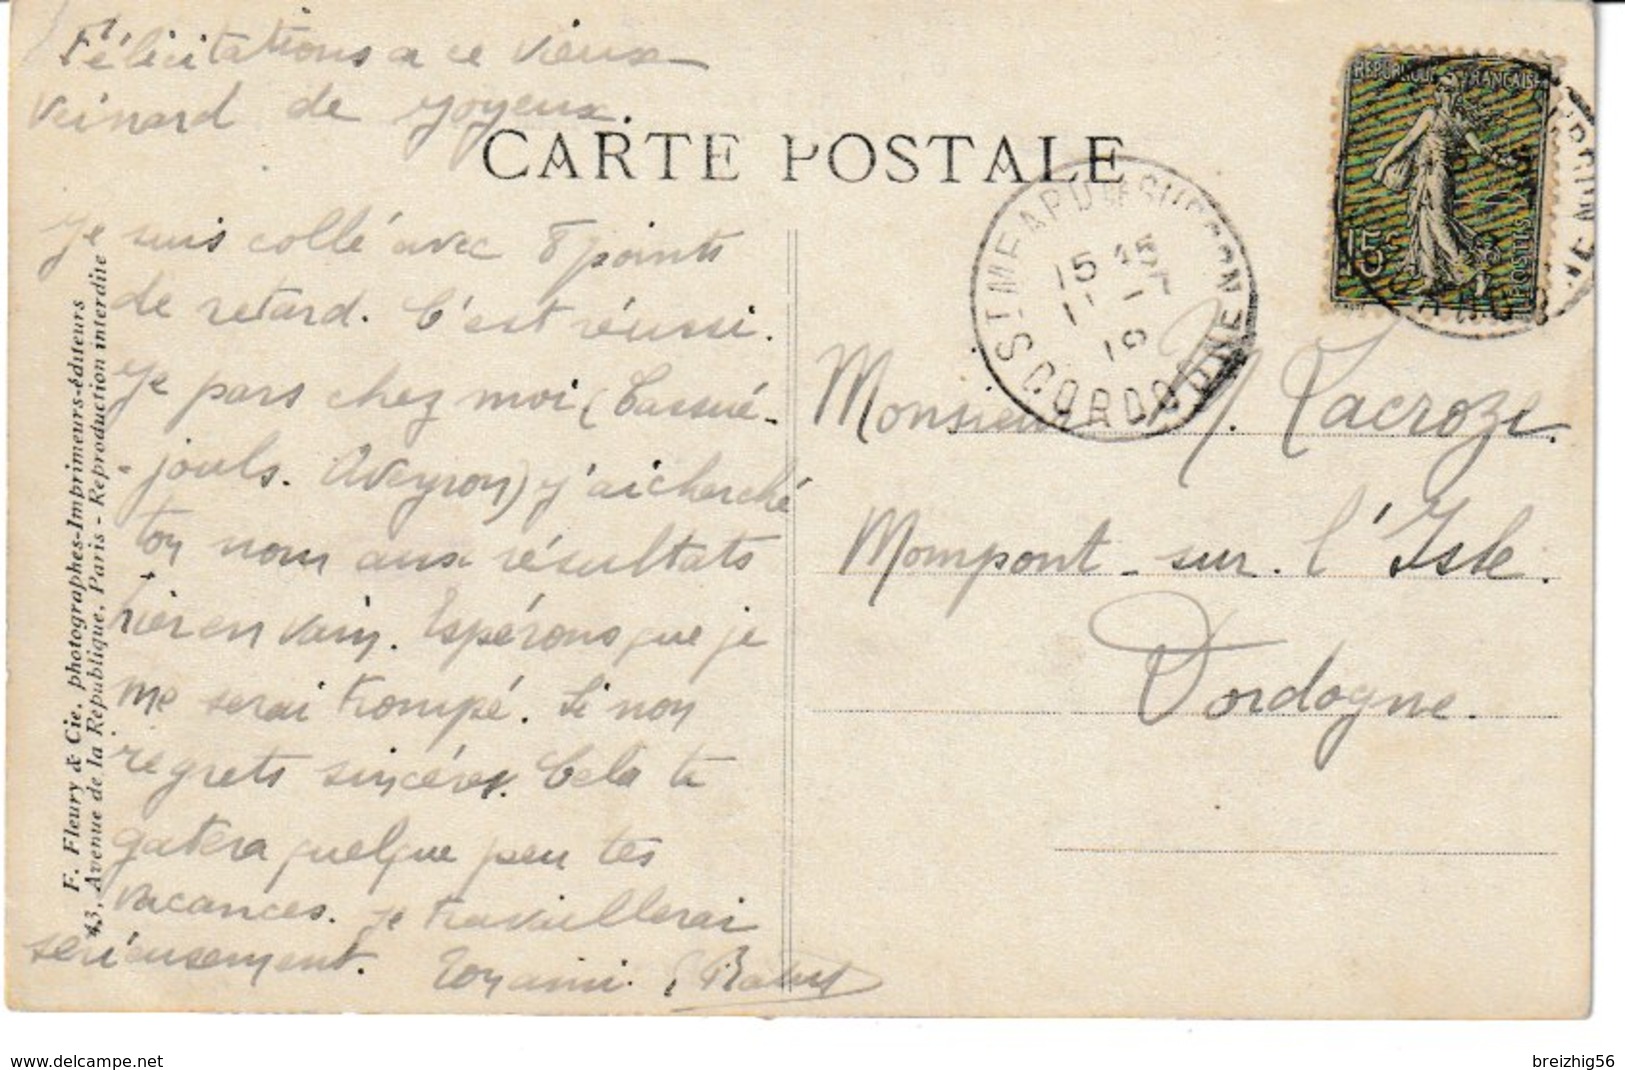 Félicitations a ce vieux
veinard de Joyeux.
CARTE POSTALE
Je suis collé avec 8 points
de retard. C'est réussi.
Je pars chez moi (Cassué-
-jouls. Aveyron) j'ai cherché
ton nom aux résultats
hier en vain. Espérons que je
me serai trompé. Si non
regrets sincères. Cela te
gatera quelque peu tes
vacances. Je travaillerai
serieusement. Ton ami.
REPUBLIQUE FRANÇAISE
15
POSTES
ST MEARD DE GURÇON
15 45
11 - 7
19
DORDOGNE
Monsieur M. Lacroze.
Mompont-sur-l'Isle.
Dordogne.
F. Fleury & Cie, photographes-Imprimeurs-éditeurs
43, Avenue de la République, Paris - Reproduction interdite
www.delcampe.net
breizhig56